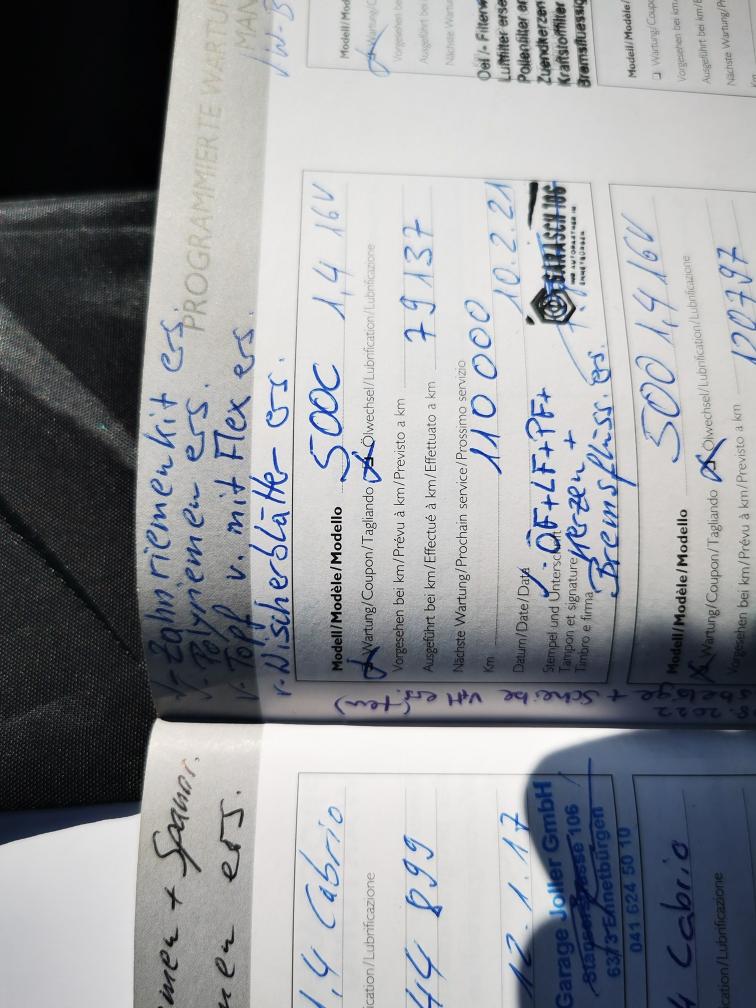 PROGRAMMIERTE WARTUN
MAN
v. Zahnriemenkit ers.
v. Polyriemen ers.
v. Topf v. mit Flex ers.
v. Wischerblätter ers.
Modell/Modèle/Modello 500C 1,4 16V
Wartung/Coupon/Tagliando Ölwechsel/Lubrification/Lubrificazione
Vorgesehen bei km/Prévu à km/Previsto a km
Ausgeführt bei km/Effectué à km/Effettuato a km 79137
Nächste Wartung/Prochain service/Prossimo servizio
Km 110 000
Datum/Date/Data 10.2.21
Stempel und Unterschrift
Tampon et signature
Timbro e firma
ÖF+LF+PF+
Kerzen +
Bremsflüss. ers.
Modell/Modèle/Modello 500 1,4 16V
Wartung/Coupon/Tagliando Ölwechsel/Lubrification/Lubrificazione
Vorgesehen bei km/Prévu à km/Previsto a km
Modell/Mod
Wartung/C
Vorgesehen bei
Ausgeführt bei
Nächste Wartu
Oel/- Filterw
Luftfilter erse
Pollenfilter er
Zuendkerzen
Kraftstofffilter
Bremsfluessig
Modell/Modèle/
Wartung/Coup
Vorgesehen bei km/
Ausgeführt bei km/E
Nächste Wartung/P
Km
2022
+ Scheibe
men + Spanar.
men ers.
1,4 Cabrio
ication/Lubrificazione
44 899
12.1.17
Garage Joller GmbH
Stanserstrasse 106
6373 Ennetbürgen
041 624 50 10
Cabrio
cation/Lubrificazione